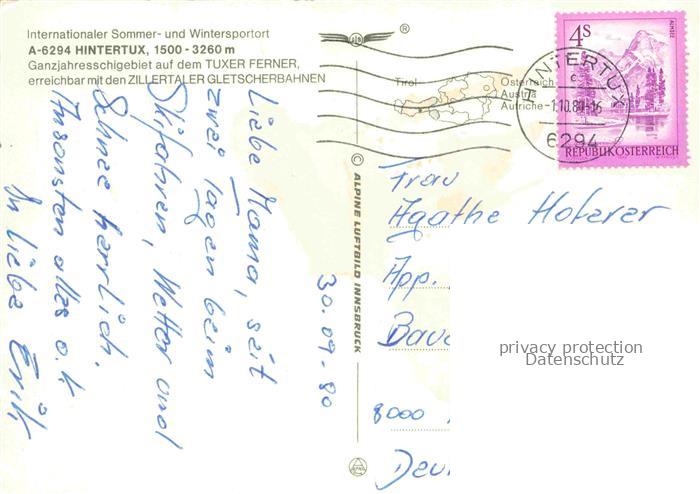 Internationaler Sommer- und Wintersportort
A-6294 HINTERTUX, 1500 - 3260 m
Ganzjahresschigebiet auf dem TUXER FERNER,
erreichbar mit den ZILLERTALER GLETSCHERBAHNEN
®
Tirol
Österreich
Austria
Autriche
4S
REPUBLIK ÖSTERREICH
HINTERTUX
c
-1.10.80-16
6294
© ALPINE LUFTBILD INNSBRUCK
30.09.80
Liebe Mama, seit
zwei Tagen beim
Skifahren, Wetter und
Schnee herrlich.
Ansonsten alles o.k
In Liebe Erik
Frau
Agathe Hoferer
App.
8000
privacy protection
Datenschutz